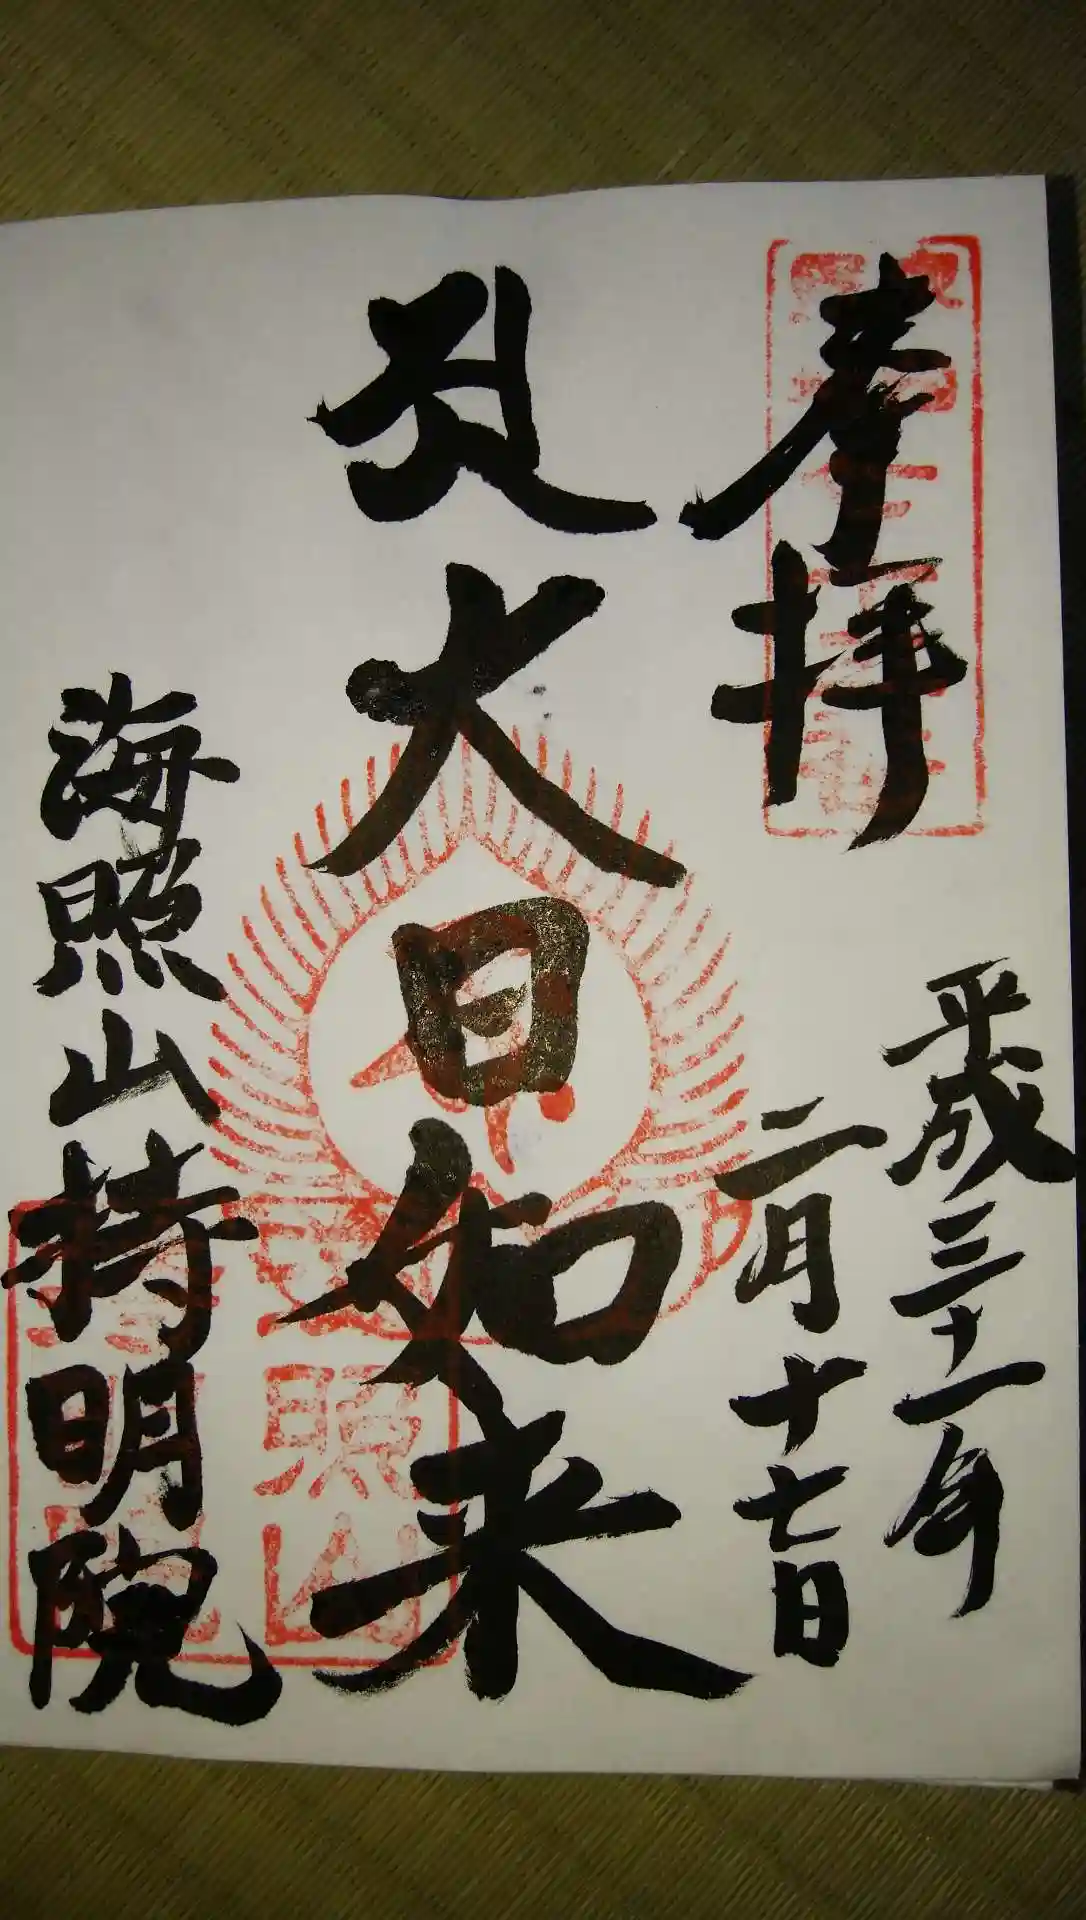 奉拝
平成三十一年
二月十七日
大日如来
海照山持明院
照山